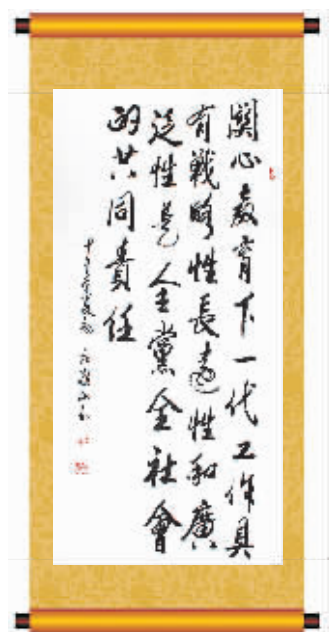 關心教育下一代工作具
有戰略性長遠性和廣
泛性是人主黨全社會
的共同責任